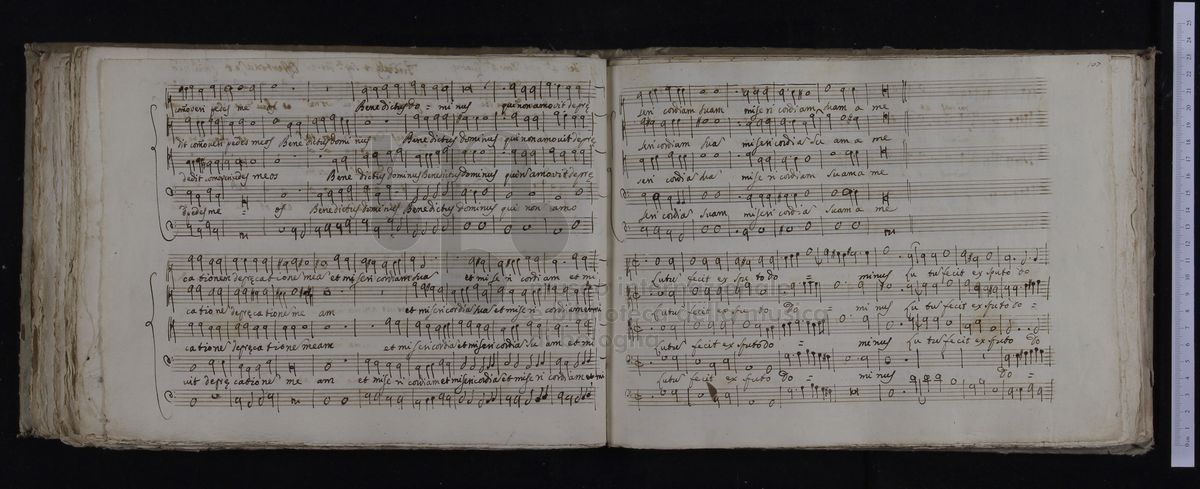 comoveri pedes me os Benedictus do = minus qui non amovit depre
dit comoveri pedes meos Benedictus domi nus Benedictus dominus qui non amovit depre
dedit comoveri pedes meos Bene dictus dominus Benedictus dominus qui non amovit depre
pedes me = os Benedictus domi nus Benedictus dominus qui non amo
cationem deprecatione mea et miseri cordiam sua et mi se ri cordiam et mi
catione deprecatione me am et misericordia sua et mise ri cordiam et mi
catione deprecatione meam et misericordia et misericordia su am et mi
vit deprecatione me am et mise ri cordiam et misericordia et mise ri cordiam et mi
107
seri cordiam suam miseri cordiam suam a me
seri cordiam sua misericordia su am a me
seri cordia sua mise ri cordiam suam a me
seri cordia suam miseri cordia suam a me
Lutu fecit ex sputo do = minus Lu tu fecit ex sputo do
Lutu fecit ex sputo do = mi nus Lu tu fecit ex sputo do =
Lutu fecit ex sputo do = mi nus Lu tu fecit ex sputo do
Lutu fecit ex sputo do = mi nus do =
internazionale
biblioteca della musica
Bologna